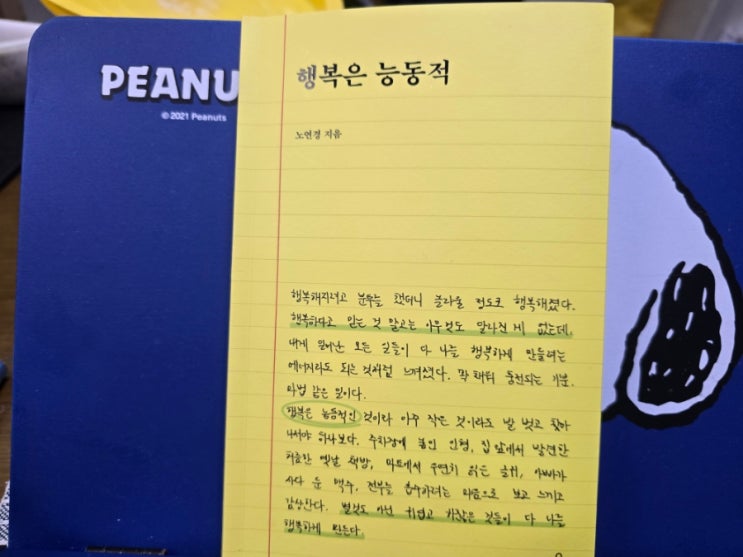 PEANU
© 2021 Peanuts
행복은 능동적
노연경 지음
행복해지려고 분투를 했더니 놀라울 정도로 행복해졌다.
행복하다고 믿는 것 말고는 아무것도 달라진 게 없는데.
내게 일어난 모든 일들이 다 나를 행복하게 만들려는
에너지라도 되는 것처럼 느껴졌다. 막 충전되는 기분.
마법 같은 일이다.
행복은 능동적인 것이라 아주 작은 것이라도 발 벗고 찾아
나서야 하나보다. 주차장에 붙인 인형, 집 앞에서 발견한
허름한 옛날 책방, 마트에서 우연히 읽은 글귀, 아빠가
사다 둔 맥주, 전부를 흡수하려는 마음으로 보고 느끼고
감상한다. 별것도 아닌 귀엽고 하찮은 것들이 다 나를
행복하게 만든다.